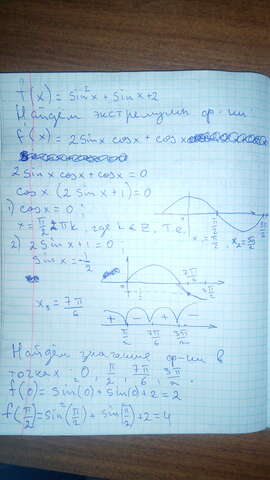 f(x) = sin²x + sinx + 2
Найдём экстремумы ф-ии
f'(x) = 2 sinx cosx + cosx
2 sinx cosx + cosx = 0
cosx (2 sinx + 1) = 0
1) cosx = 0 ;
x = π/2 + πk, где k ∈ Z, т.е.
x₁ = π/2, x₂ = 3π/2
2) 2 sinx + 1 = 0 ;
sinx = -1/2
7π/6
3π/2
x₃ = 7π/6
+ - + -
π/2 7π/6 3π/2
Найдём значение ф-ии в
точках: 0, π/2, 7π/6, 3π/2.
f(0) = sin(0) + sin(0) + 2 = 2
f(π/2) = sin²(π/2) + sin(π/2) + 2 = 4